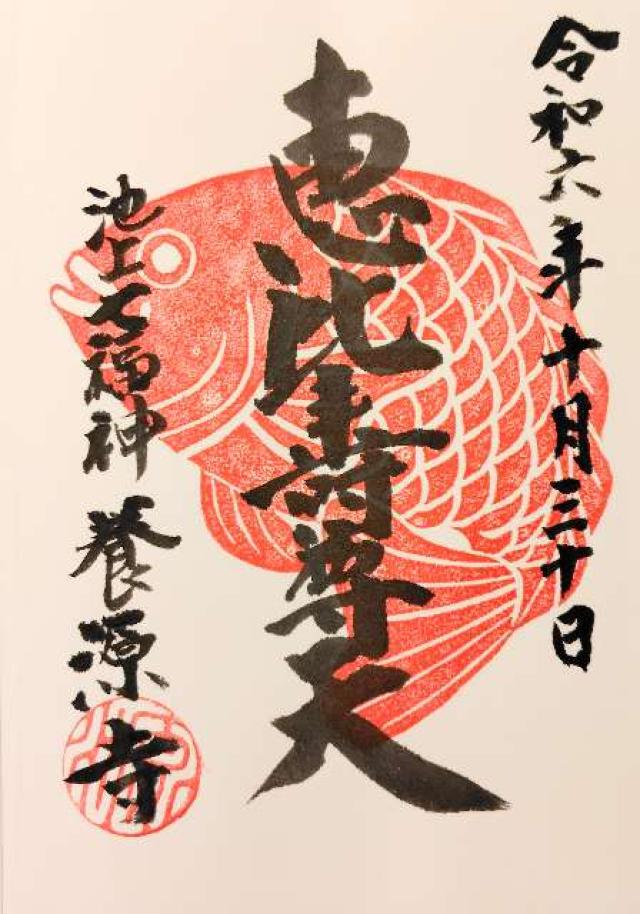 令和六年十月三十日
恵比壽尊天
池上七福神 養源寺